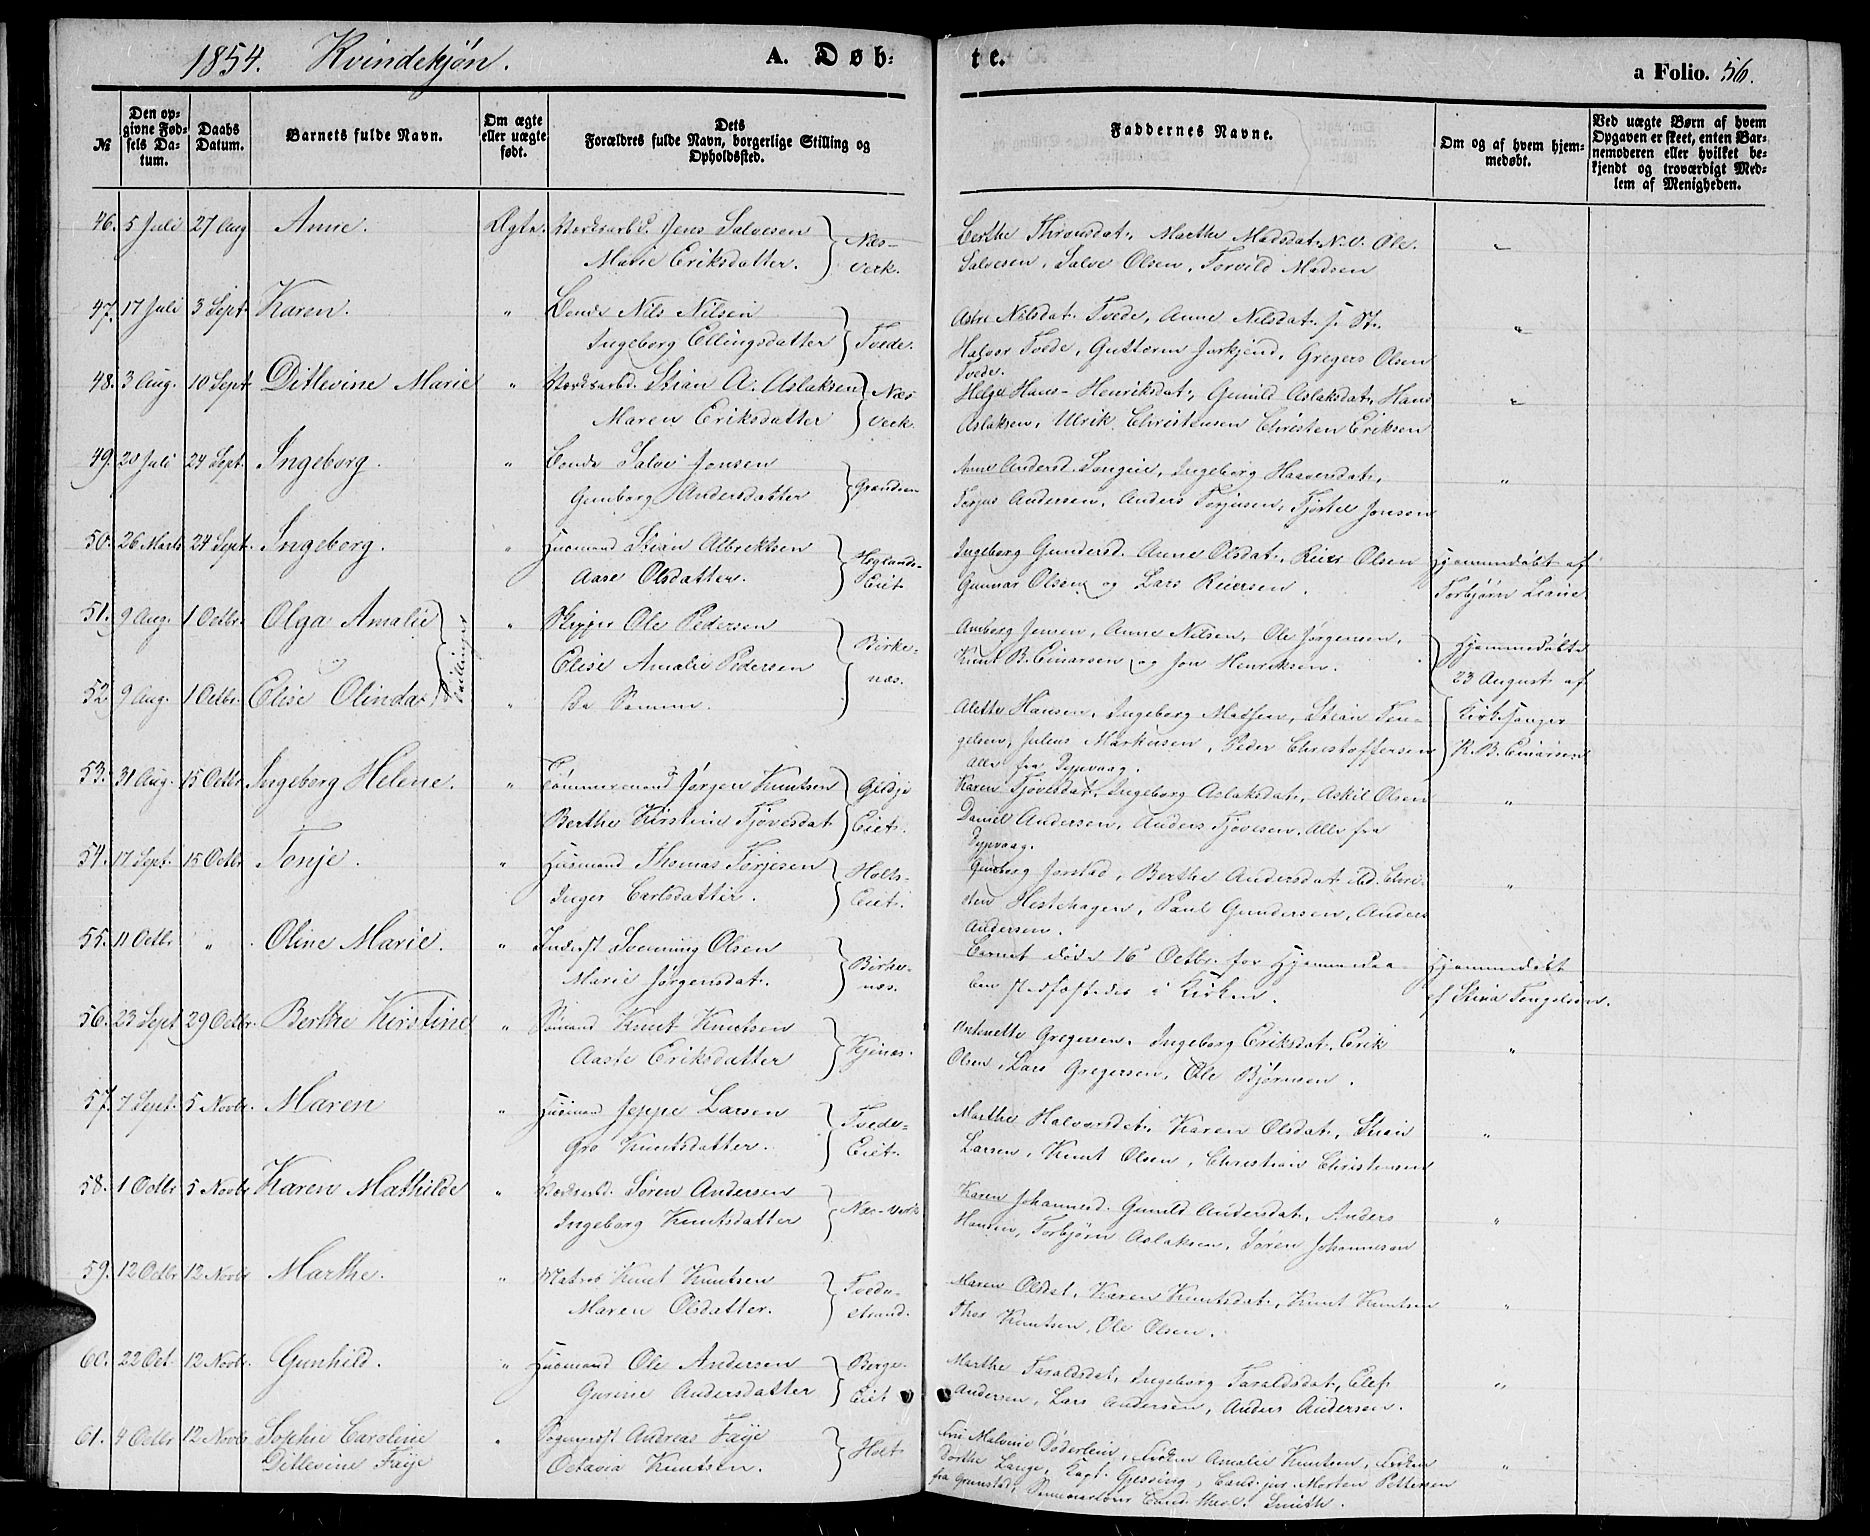 1854. Kvindekjøn.
A. Døb-
te.
a Folio. 56.
№
Den opgivne Fødsels Datum.
Daabs Datum.
Barnets fulde Navn.
Om ægte eller uægte født.
Dets Forældres fulde Navn, borgerlige Stilling og Opholdssted.
Faddernes Navne.
Om og af hvem hjemmedøbt.
Ved uægte Børn af hvem Opgaven er skeet, enten Barnemoderen eller hvilket bekjendt og troværdigt Medlem af Menigheden.
46. 5 Juli 27 Aug Anne. Ægte. Værksarbd. Jens Salvesen
Marie Eriksdatter. Næs-Verk.
Berthe Thronsdat., Marthe Madsdat. N.V. Ole
Salvesen, Salve Olsen, Torvild Madsen
47. 17 Juli 3 Sept. Karen. " Bonde Nils Nilsen
Ingeborg Ellingsdatter Tvede.
Astri Nilsdat. Tvede, Anne Nilsdat.
Halvor Tvede, Guttorm Jorkjend, Gregers Olsen
Tvede.
48. 3 Aug. 10 Sept. Ditlevine Marie " Værksarbd. Stian A. Aslaksen
Maren Eriksdatter Næs Verk.
Helge Hans- Henriksdat, Gunild Aslaksdat, Hans
Aslaksen, Ulrik Christensen Christen Eriksen
49. 20 Juli 24 Sept. Ingeborg. " Bonde Salve Jonsen
Gunborg Andersdatter
Anne Andersd. Songeie, Ingeborg Haaversdat.,
Terjus Andersen, Anders Terjusen, Tjøstel Jonsen
50. 26 Marts 24 Sept. Ingeborg. " Husmand Stian Albrektsen
Aase Olsdatter. Høglands-Eiet
Ingeborg Gundersd. Anne Olsdat. Reier Olsen
Gunnar Olsen og Lars Reiersen.
Hjemmedøbt af
Torbjørn Liane
51. 9 Aug. 1 Octbr. Olga Amalie " Skipper Ole Pedersen
Elise Amalie Pedersen Birke-næs.
Tvillinger
Amborg Jensen, Anne Nilsen, Ole Jørgensen,
Knut B. Einarsen og Jon Henriksen.
Hjemmedøbte
23 August af
Kirkesanger
K. B. Einarsen
52. 9 Aug. 1 Octbr. Elise Olinda " De Samme.
Alette Hansen, Ingeborg Madsen, Stian Ten-
gelsen, Julius Markusen, Peder Christoffersen
Alle fra Dypvaag.
53. 31 Aug. 15 Octbr Ingeborg Helene. " Tømmermand Jørgen Knutsen
Berthe Kirstine Tjøvesdat Gidje Eiet.
Karen Tjøvesdat, Ingeborg Aslaksdat., Askil Olsen
Daniel Andersen, Anders Tjøvesen, Alle fra
Dypvaag.
54. 17 Sept. 15 Octbr Tonje. " Husmand Thomas Terjesen
Inger Carlsdatter. Holts-Eiet.
Gunborg Jorstad, Berthe Andersdat. Chri-
sten Hestehagen, Paul Gundersen, Anders
Andersen.
55. 11 Octbr " Oline Marie. " Inderst Svenning Olsen
Marie Jørgensdat. Birke-næs.
Barnet døde 16 Octbr. før Hjemmedaa-
ben stadfæstedes i Kirken.
Hjemmedøbt
af Stina Tengelsen.
56. 23 Sept 29 Octbr. Berthe Kirstine " Sømand Knut Knutsen
Aaste Eriksdatter Kjenes.
Antonette Gregersen, Ingeborg Eriksdat, Erik
Olsen, Lars Gregersen, Ole Bjørnsen.
57. 7 Sept. 5 Novbr. Maren " Husmand Jeppe Larsen
Gro Knutsdatter. Tvede-Eiet.
Marthe Halvorsdat., Karen Olsdat., Stian
Larsen, Knut Olsen, Christian Christensen
58. 1 Octbr 5 Novbr Karen Mathilde " Værksarbd. Søren Andersen
Ingeborg Knutsdatter Næs-Verk
Karen Johannesd. Gunild Andersdat., Anders
Hansen, Torbjørn Aslaksen, Søren Johannesen
59. 12 Octbr 12 Novbr Marthe. " Matros Knut Knutsen
Maren Olsdatter. Tvede-strand.
Maren Olsdat, Karen Knutsdat., Knut Knutsen
Thos Knutsen, Ole Olsen.
60. 22 Oct. 12 Novbr. Gunhild. " Husmand Ole Andersen
Gurine Andersdatter Berge-Eiet
Marthe Taraldsdat, Ingeborg Taraldsdat., Elef
Andersen, Lars Andersen, Anders Andersen.
61. 4 Octbr 12 Novbr Sophie Caroline
Ditlevine Faye " Sogneprest Andreas Faye
Octavia Knutsen. Holt
Fru Malvine Døderlein, Frøken Amalie Knutsen, Frøken
Dorthe Lange, Kapt. Gjessing, Cand. jur. Morten Pettersen
fra Grimstad, Seminarlærer Cand. theol. Smith.